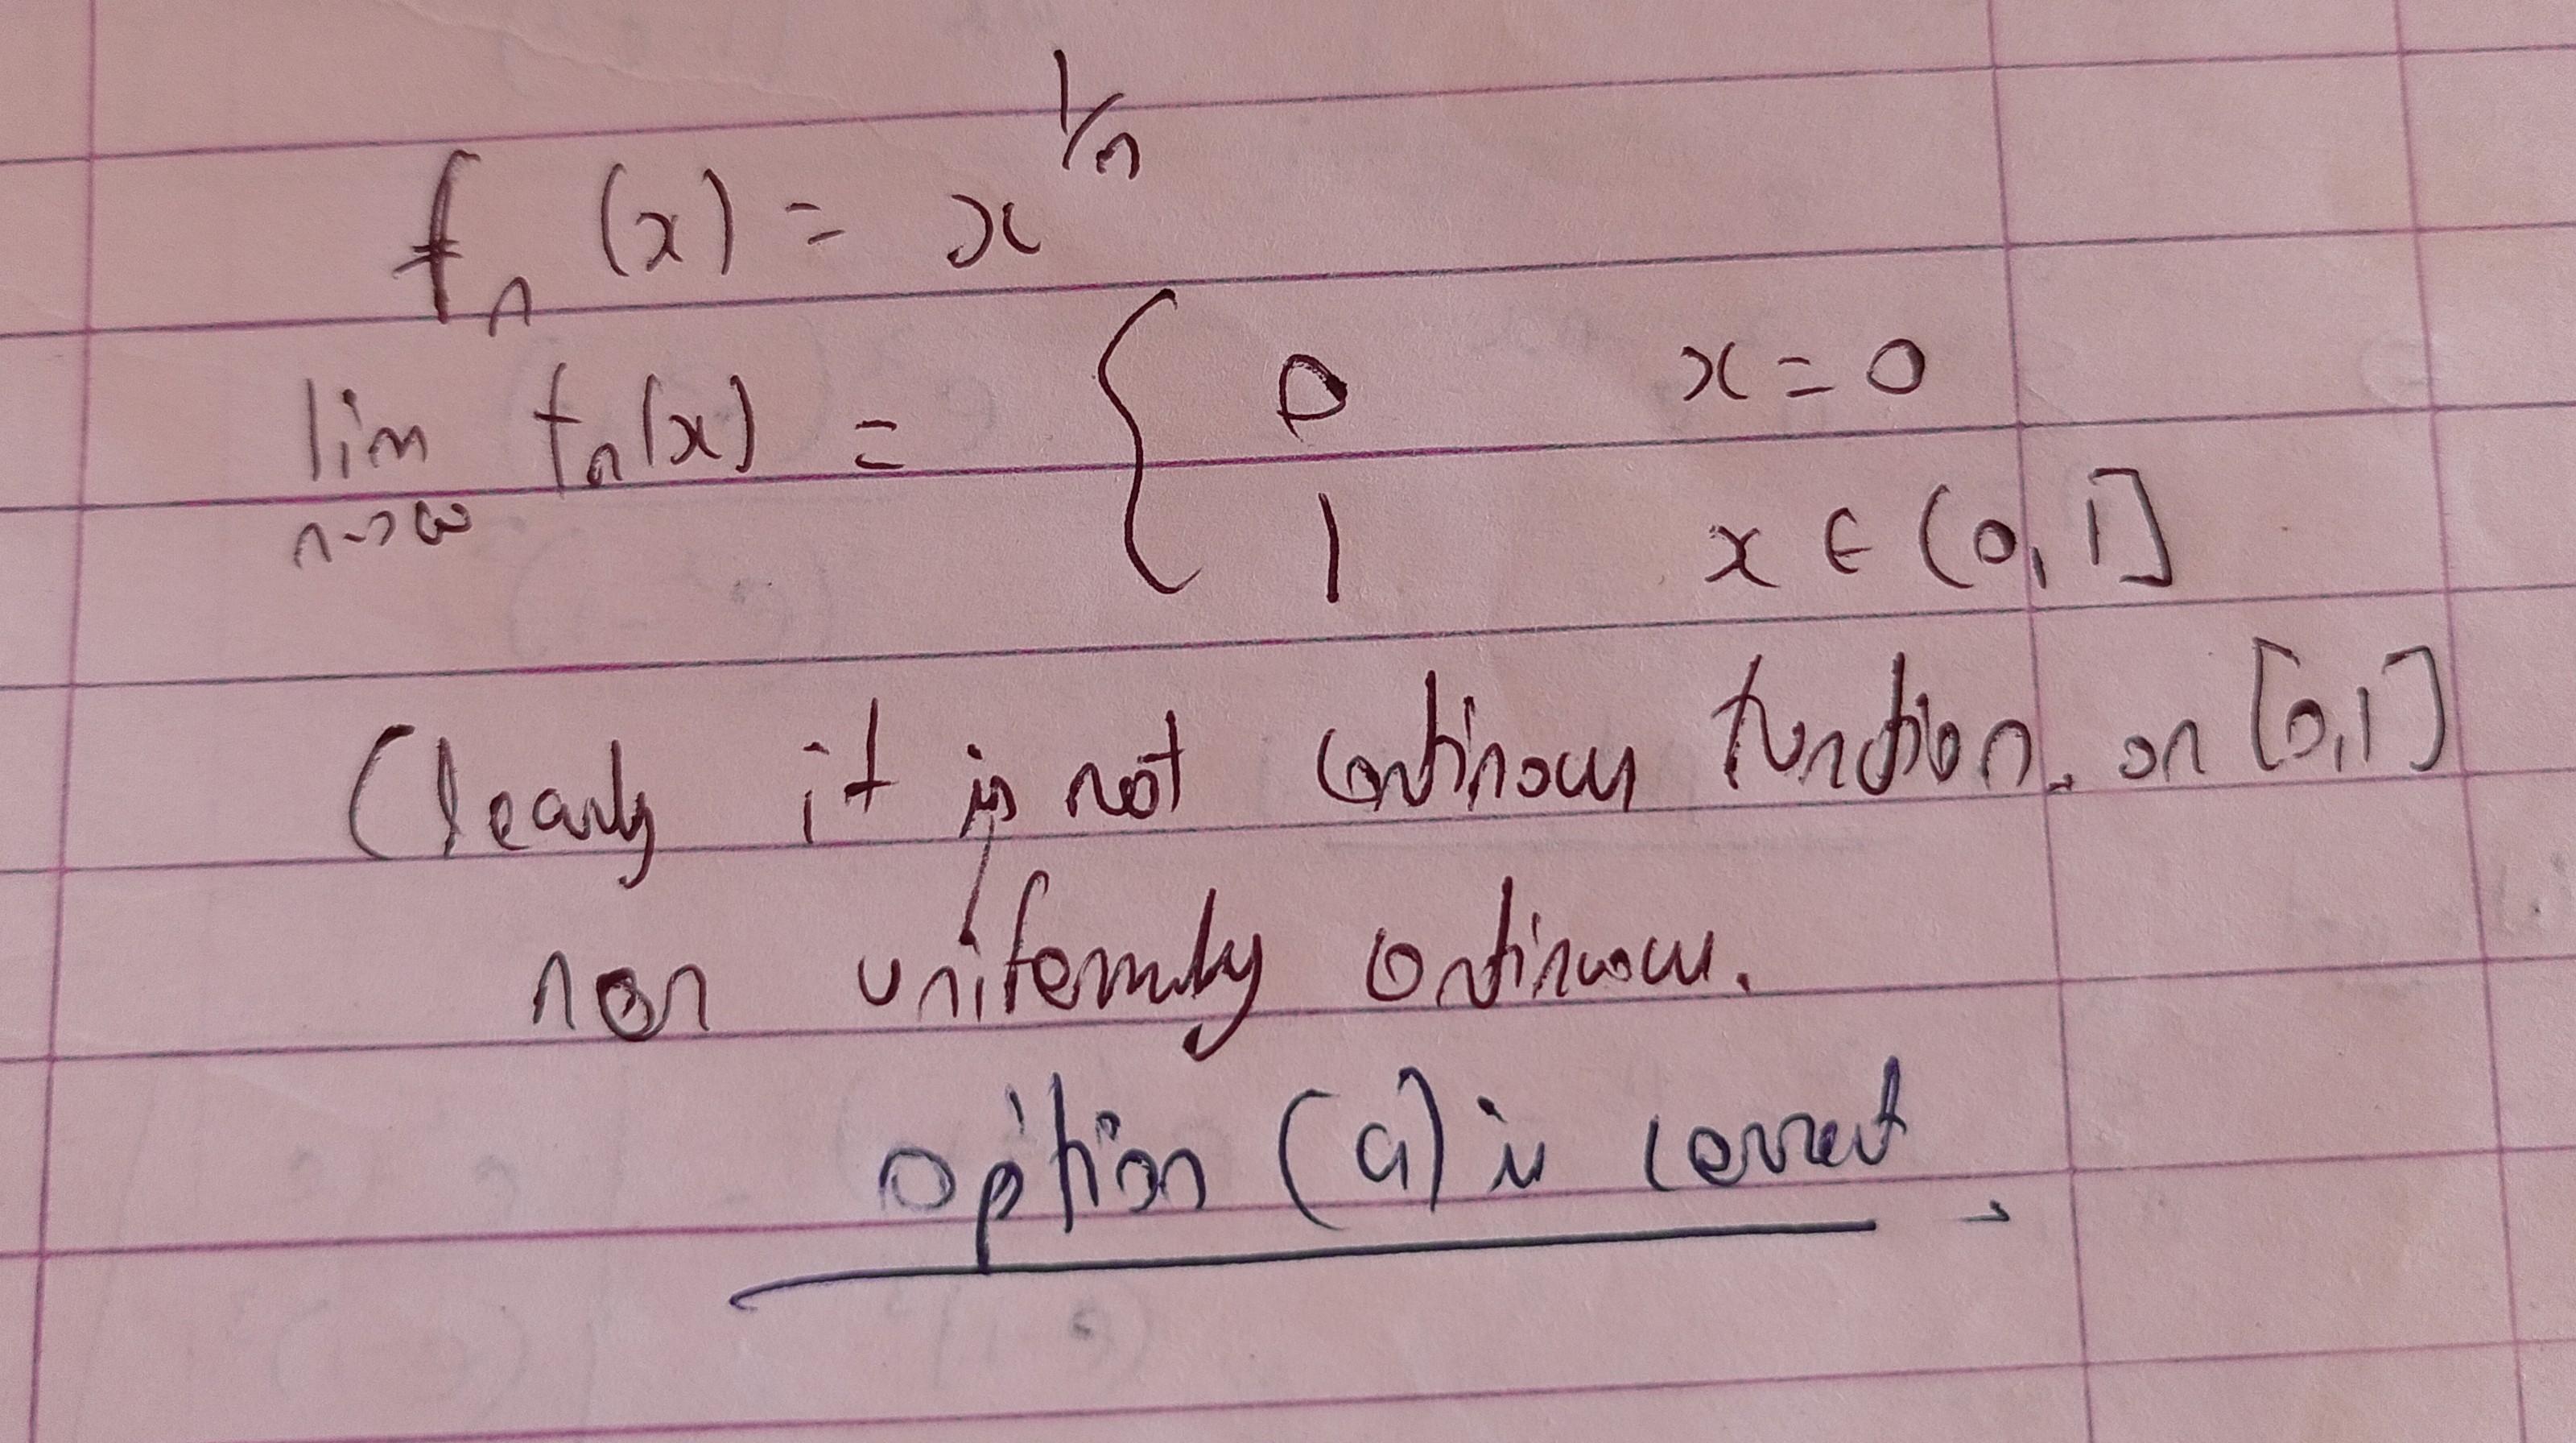 fn (x) = x^1/n
lim n→∞ fn(x) = { 0 x = 0
1 x ∈ (0, 1]
Clearly it is not continous function. on [0,1]
non uniformly continuous.
option (a) is correct.